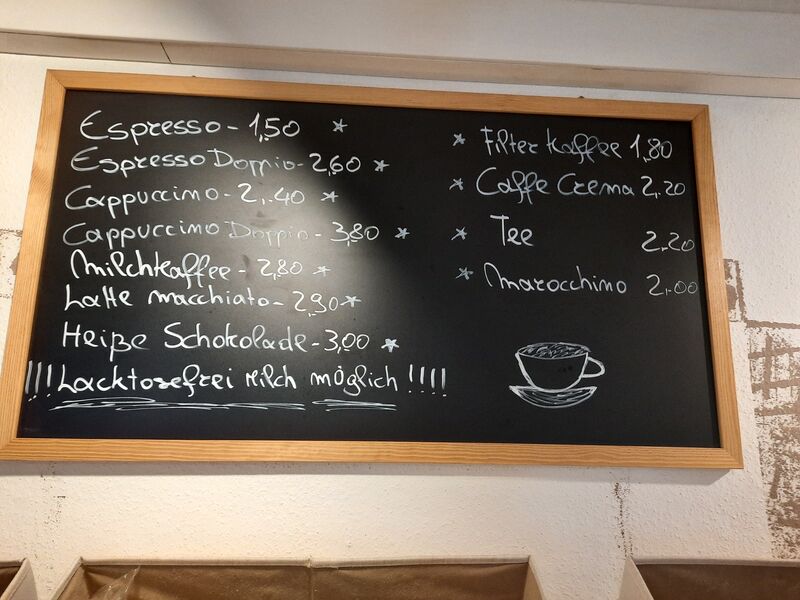 Espresso - 1,50
Espresso Doppio - 2,60
Cappuccino - 2,40
Cappuccino Doppio - 3,80
Milchkaffee - 2,80
Latte macchiato - 2,90
Heiße Schokolade - 3,00
!!! Lacktosefrei Milch möglich !!!!
Filter Kaffee 1,80
Caffe Crema 2,20
Tee 2,20
Marocchino 2,00